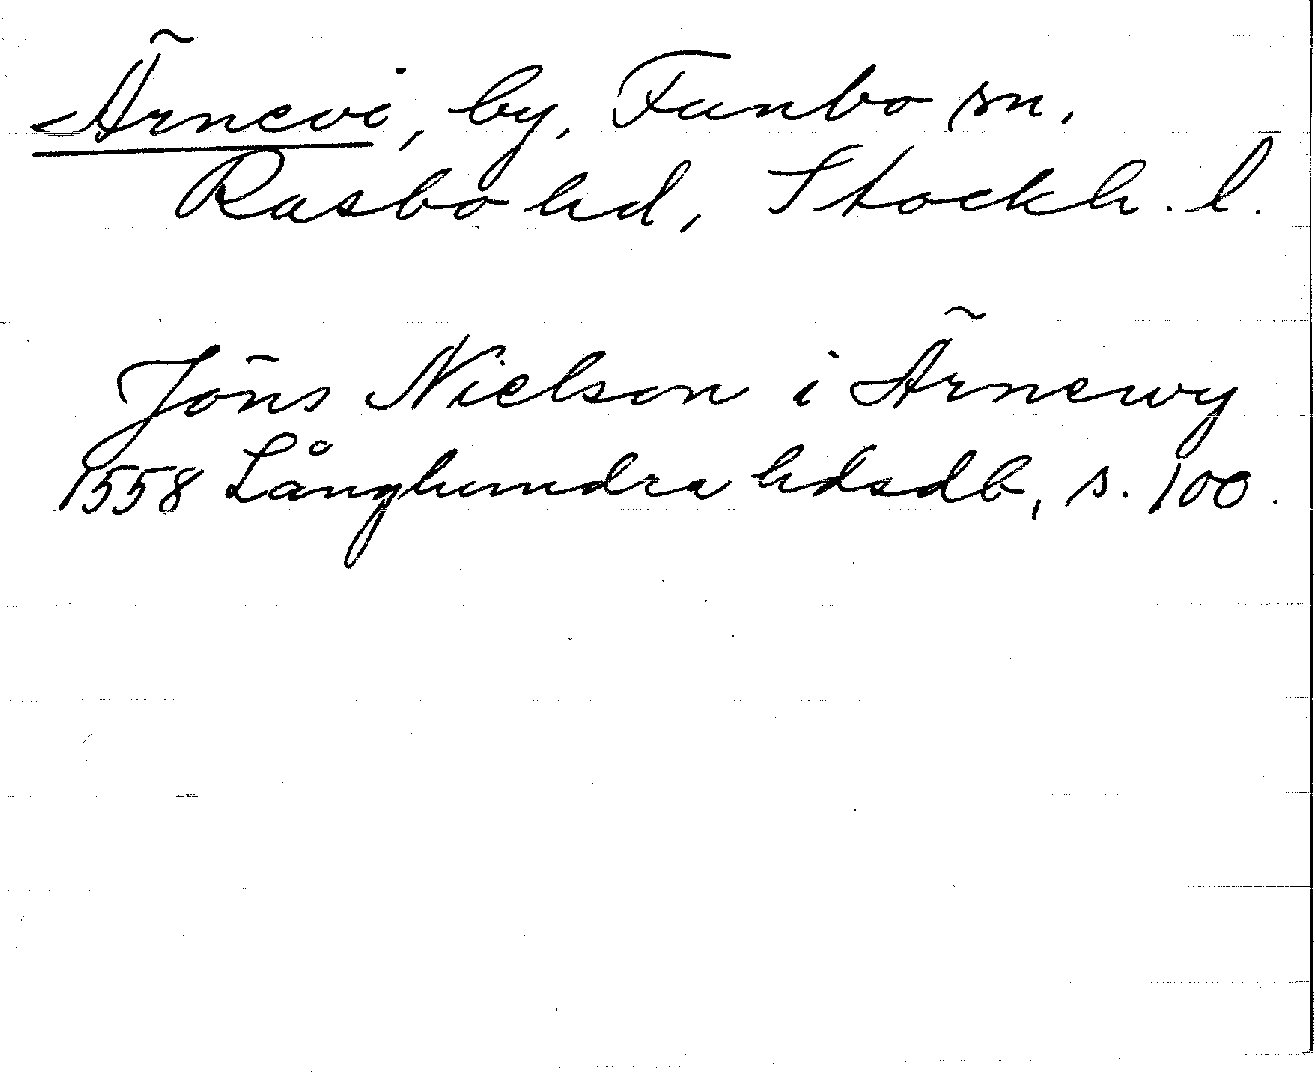 Ärnevi, by, Funbo sn.
Rasbo hd, Stockh. l.
Jöns Nielson i Ärnewy
1558 Långhundra hdsdb, s. 100.